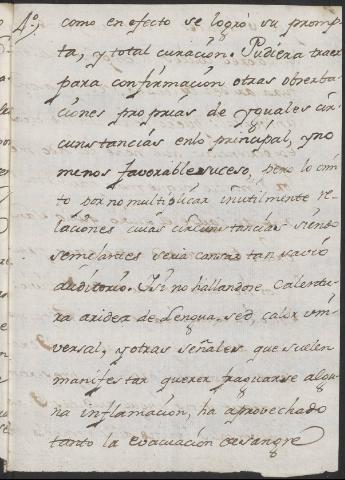 4.º, como en efecto se logró su promp-
ta, y total curación. Pudiera traer
para confirmación otras obserba-
ciones proprias de yguales cir-
cunstancias enlo principal, y no
menos favorable suceso, pero lo omi-
to por no multiplicar inutilmente re-
laciones cuias circunstancias siendo
semejantes seria cansar tan savio
auditorio. Si no hallandose calentu-
ra aridez de Lengua, séd, calor uni-
versal, y otras señales que suelen
manifestar querer fraguarse algu-
na inflamación, ha aprovechado
tanto la evacuación de sangre